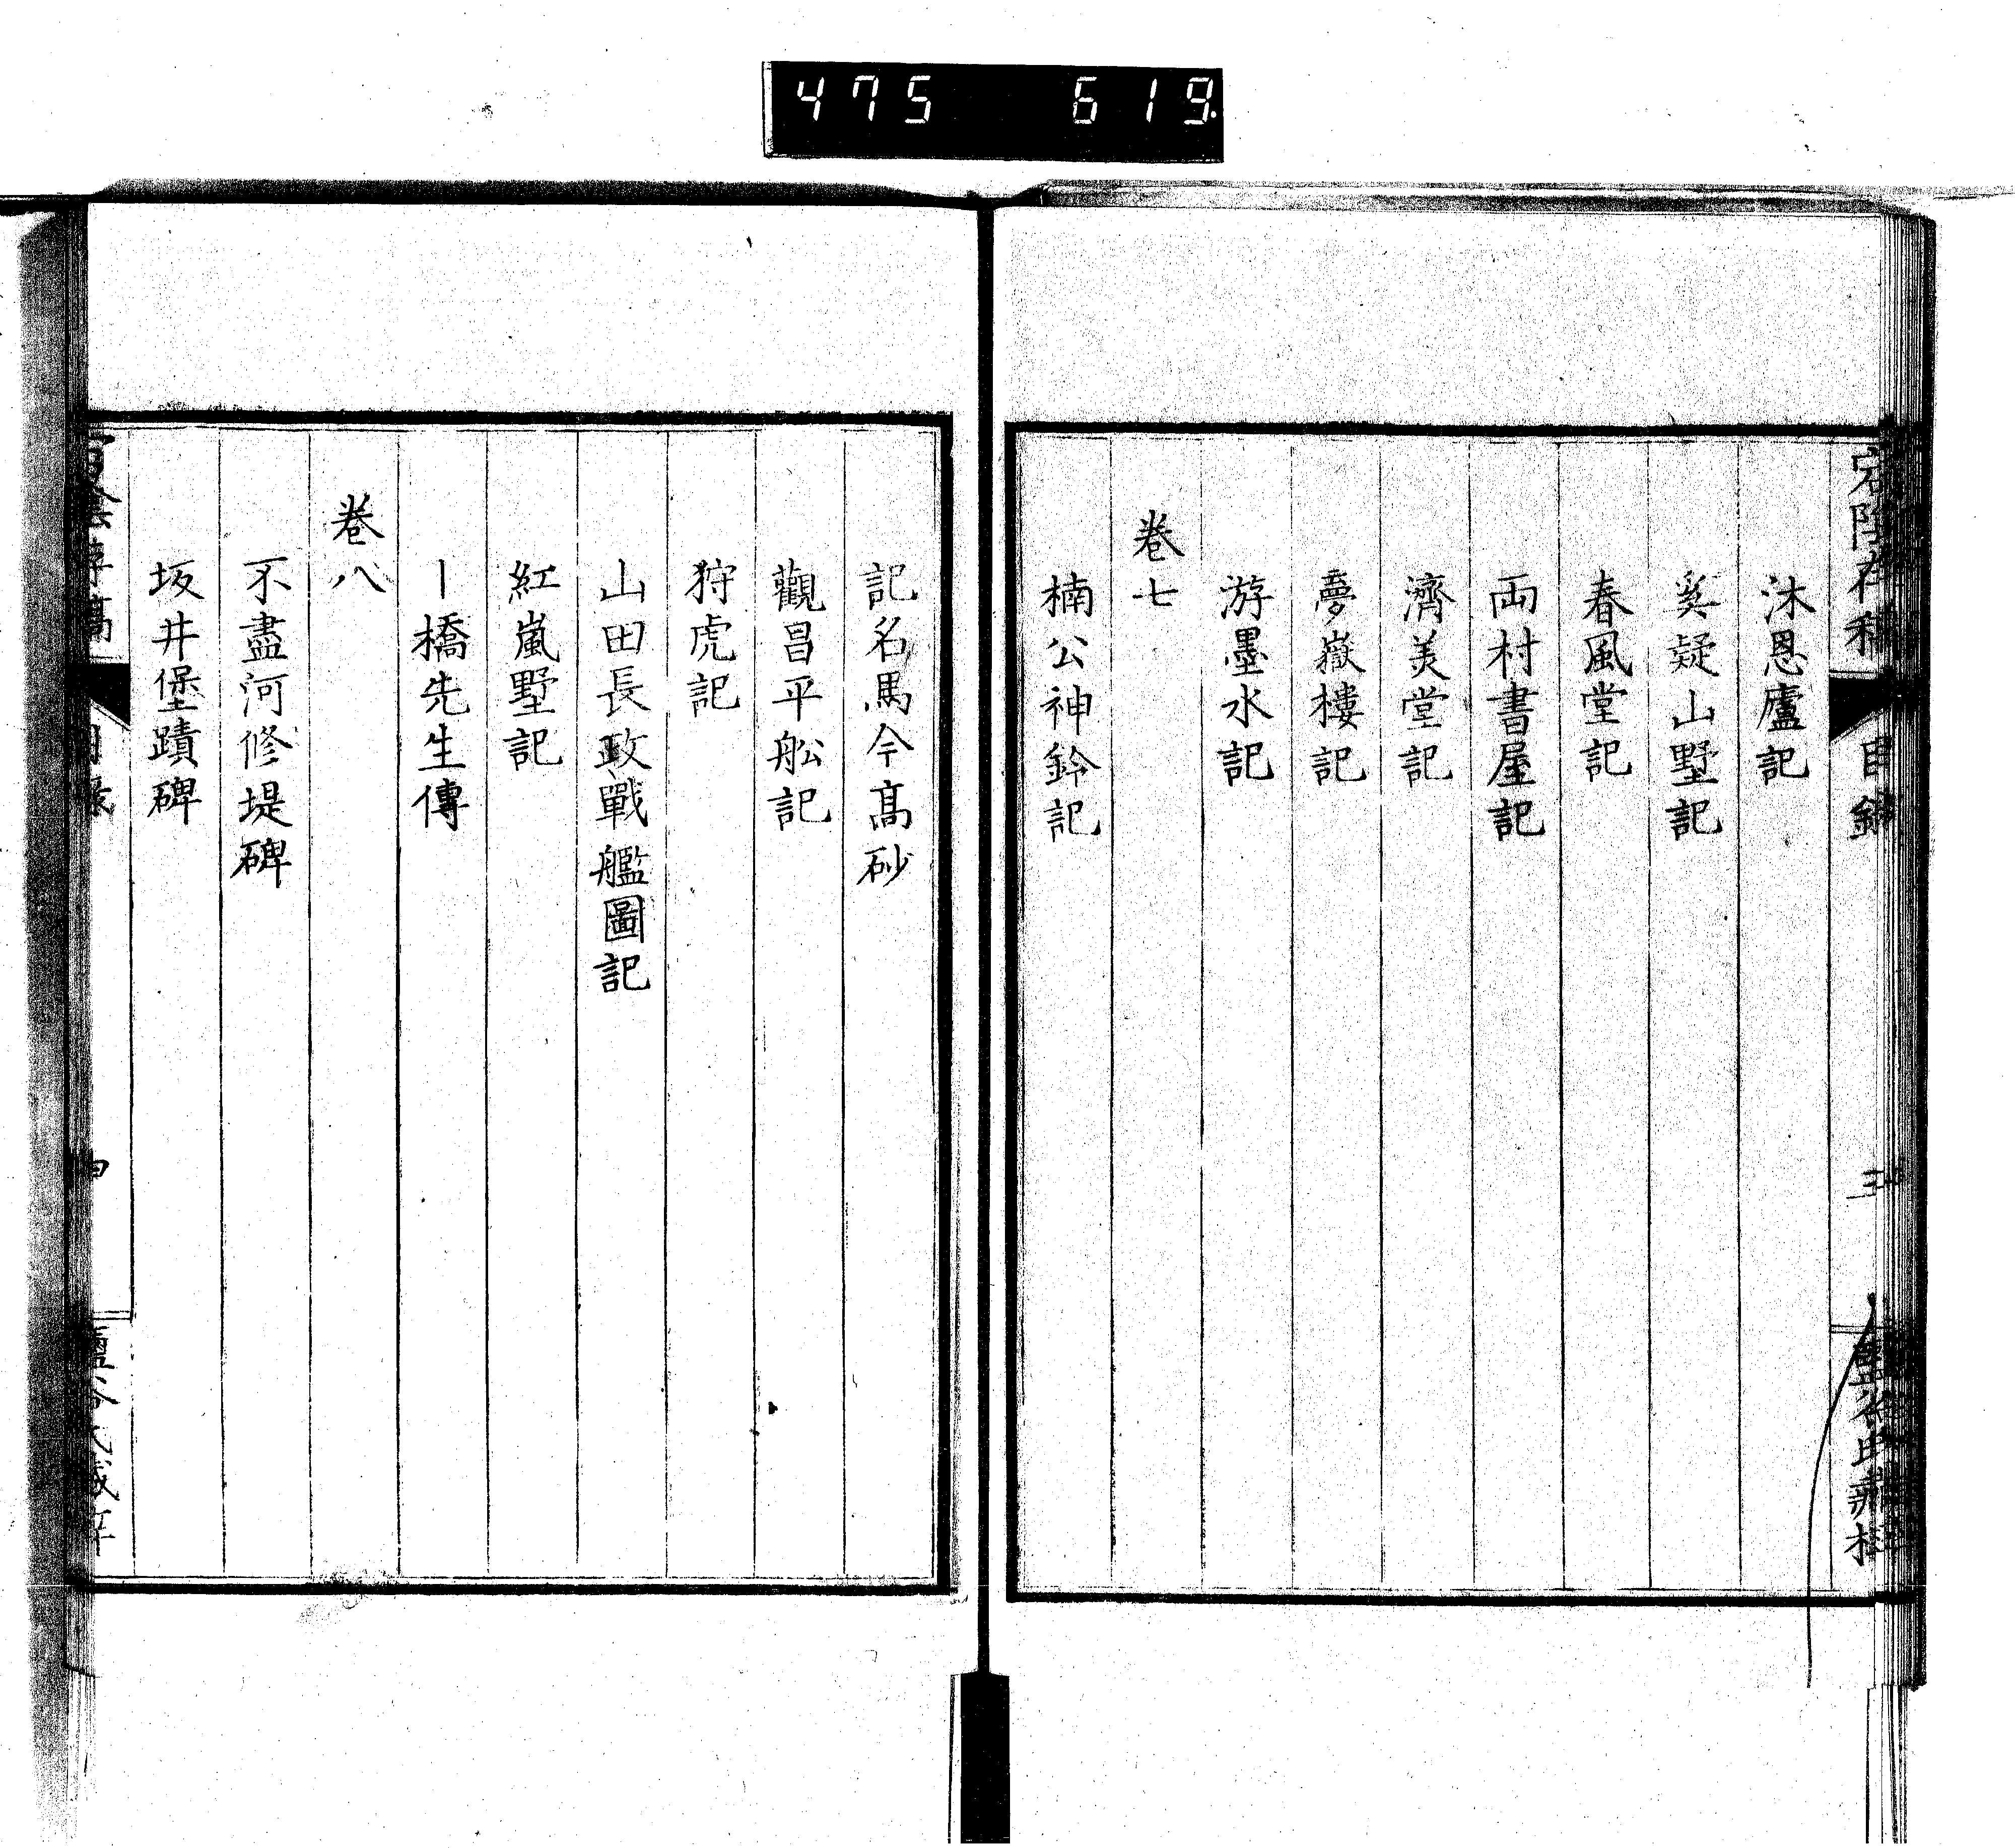 475 619
沐恩廬記
奚疑山墅記
春風堂記
両村書屋記
濟美堂記
夢嶽樓記
游墨水記
卷七
楠公神鈴記
記名馬今髙砂
觀昌平舩記
狩虎記
山田長政戰艦圖記
紅嵐墅記
一橋先生傳
卷八
不盡河修堤碑
坂井堡蹟碑